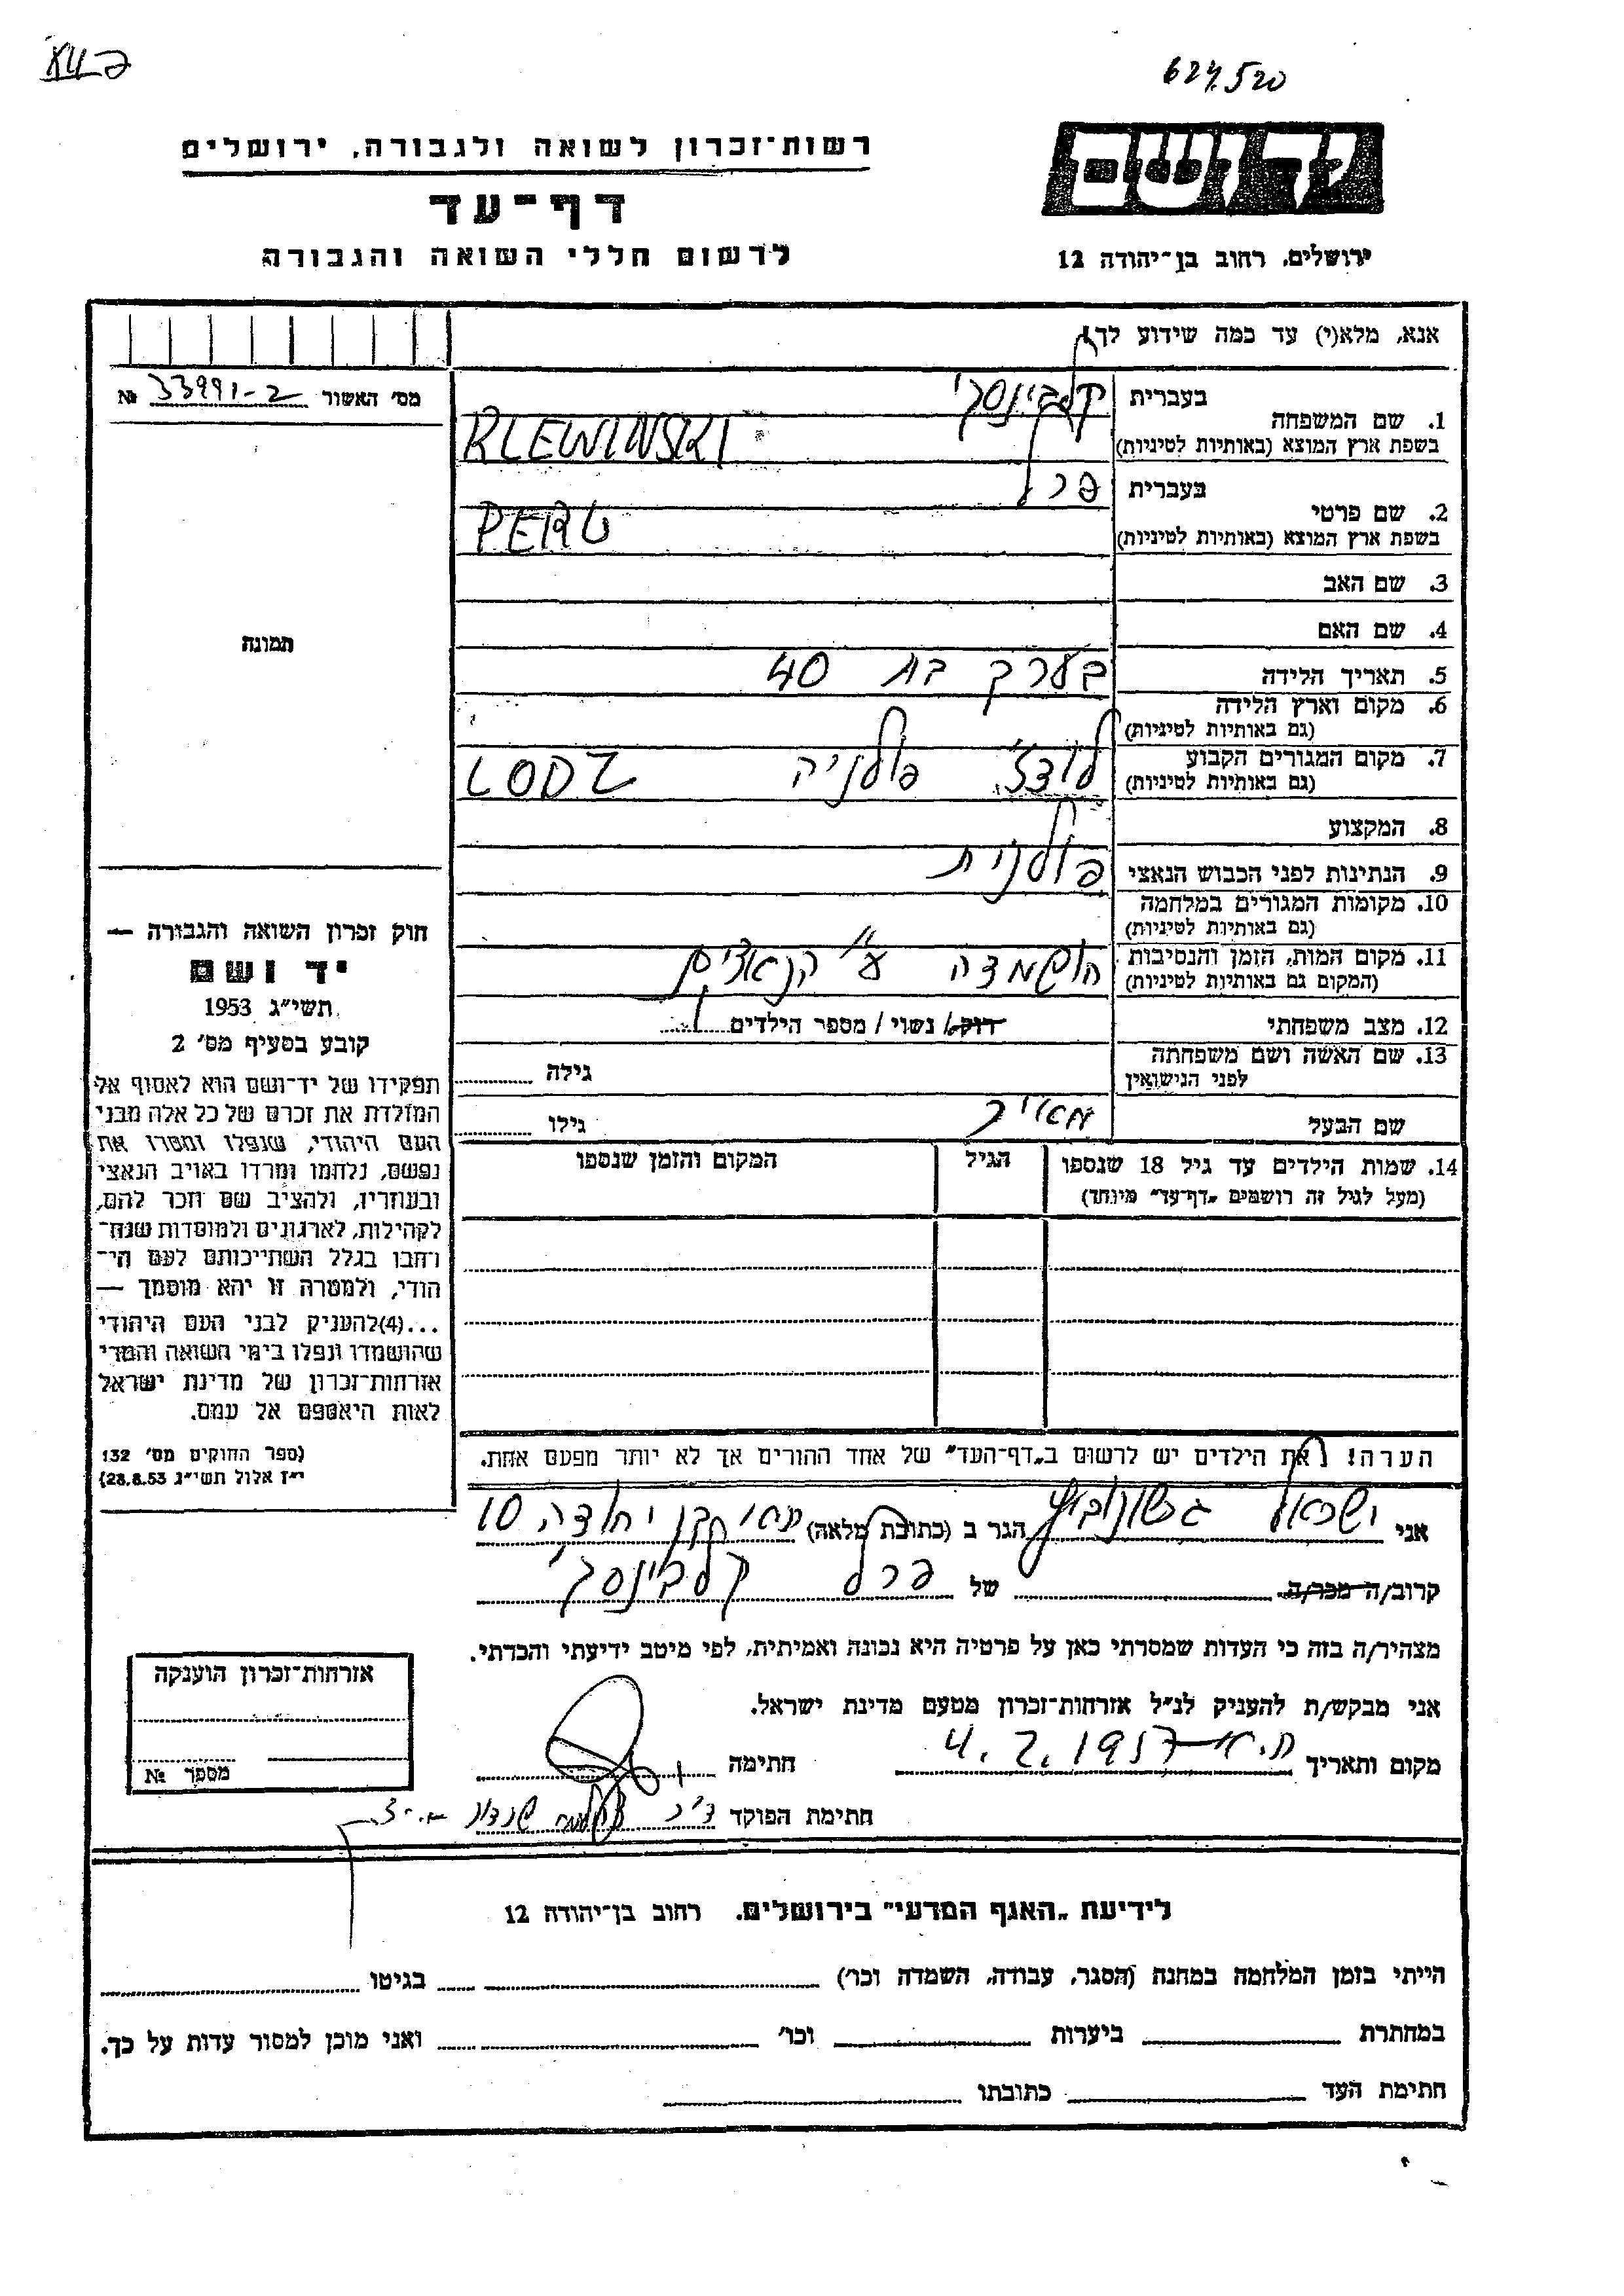 624520
רשות־זכרון לשואה ולגבורה, ירושלים
דף־עד
לרשום חללי השואה והגבורה
יד ושם
ירושלים, רחוב בן־יהודה 12
אנא, מלא(י) עד כמה שידוע לך!
מס' האשור 33991-2 №
תמונה
1. שם המשפחה
בעברית קלבינסקי
בשפת ארץ המוצא (באותיות לטיניות) KLEWINSKI
2. שם פרטי
בעברית פרל
בשפת ארץ המוצא (באותיות לטיניות) PERL
3. שם האב
4. שם האם
5. תאריך הלידה בערך בת 40
6. מקום וארץ הלידה
(גם באותיות לטיניות)
7. מקום המגורים הקבוע לודז' פולניה LODZ
(גם באותיות לטיניות)
8. המקצוע
9. הנתינות לפני הכבוש הנאצי פולנית
10. מקומות המגורים במלחמה
(גם באותיות לטיניות)
11. מקום המות, הזמן והנסיבות הושמדה ע"י הנאצים
(המקום גם באותיות לטיניות)
12. מצב משפחתי רוק/ נשוי / מספר הילדים
13. שם האשה ושם משפחתה גילה
לפני הנישואין
שם הבעל מאיר גילו
14. שמות הילדים עד גיל 18 שנספו הגיל המקום והזמן שנספו
(מעל לגיל זה רושמים „דף־עד" מיוחד)
חוק זכרון השואה והגבורה —
יד ושם
תשי"ג 1953
קובע בסעיף מס' 2
תפקידו של יד־ושם הוא לאסוף אל
המולדת את זכרם של כל אלה מבני
העם היהודי, שנפלו ומסרו את
נפשם, נלחמו ומרדו באויב הנאצי
ובעוזריו, ולהציב שם וזכר להם,
לקהילות, לארגונים ולמוסדות שנח־
רחבו בגלל השתייכותם לעם הי־
הודי, ולמטרה זו יהא מוסמך —
...(4)להעניק לבני העם היהודי
שהושמדו ונפלו בימי השואה והמרי
אזרחות־זכרון של מדינת ישראל
לאות היאספם אל עמם.
(ספר החוקים מס' 132
י"ז אלול תשי"ג 28.8.53)
הערה! את הילדים יש לרשום ב„דף־העד" של אחד ההורים אך לא יותר מפעם אחת.
אני ישראל גרשונוביץ הגר ב (כתובת מלאה) יהודה 10
קרוב/ה מכר/ה של פרל קלבינסקי
מצהיר/ה בזה כי העדות שמסרתי כאן על פרטיה היא נכונה ואמיתית, לפי מיטב ידיעתי והכרתי.
אני מבקש/ת להעניק לנ"ל אזרחות־זכרון מטעם מדינת ישראל.
מקום ותאריך ת.א 4.2.1957 חתימה
חתימת הפוקד
אזרחות־זכרון הוענקה
מספר №
לידיעת „האגף המדעי" בירושלים, רחוב בן־יהודה 12
הייתי בזמן המלחמה במחנה (הסגר, עבודה, השמדה וכו') בגיטו
במחתרת ביערות וכו' ואני מוכן למסור עדות על כך.
חתימת העד כתובתו